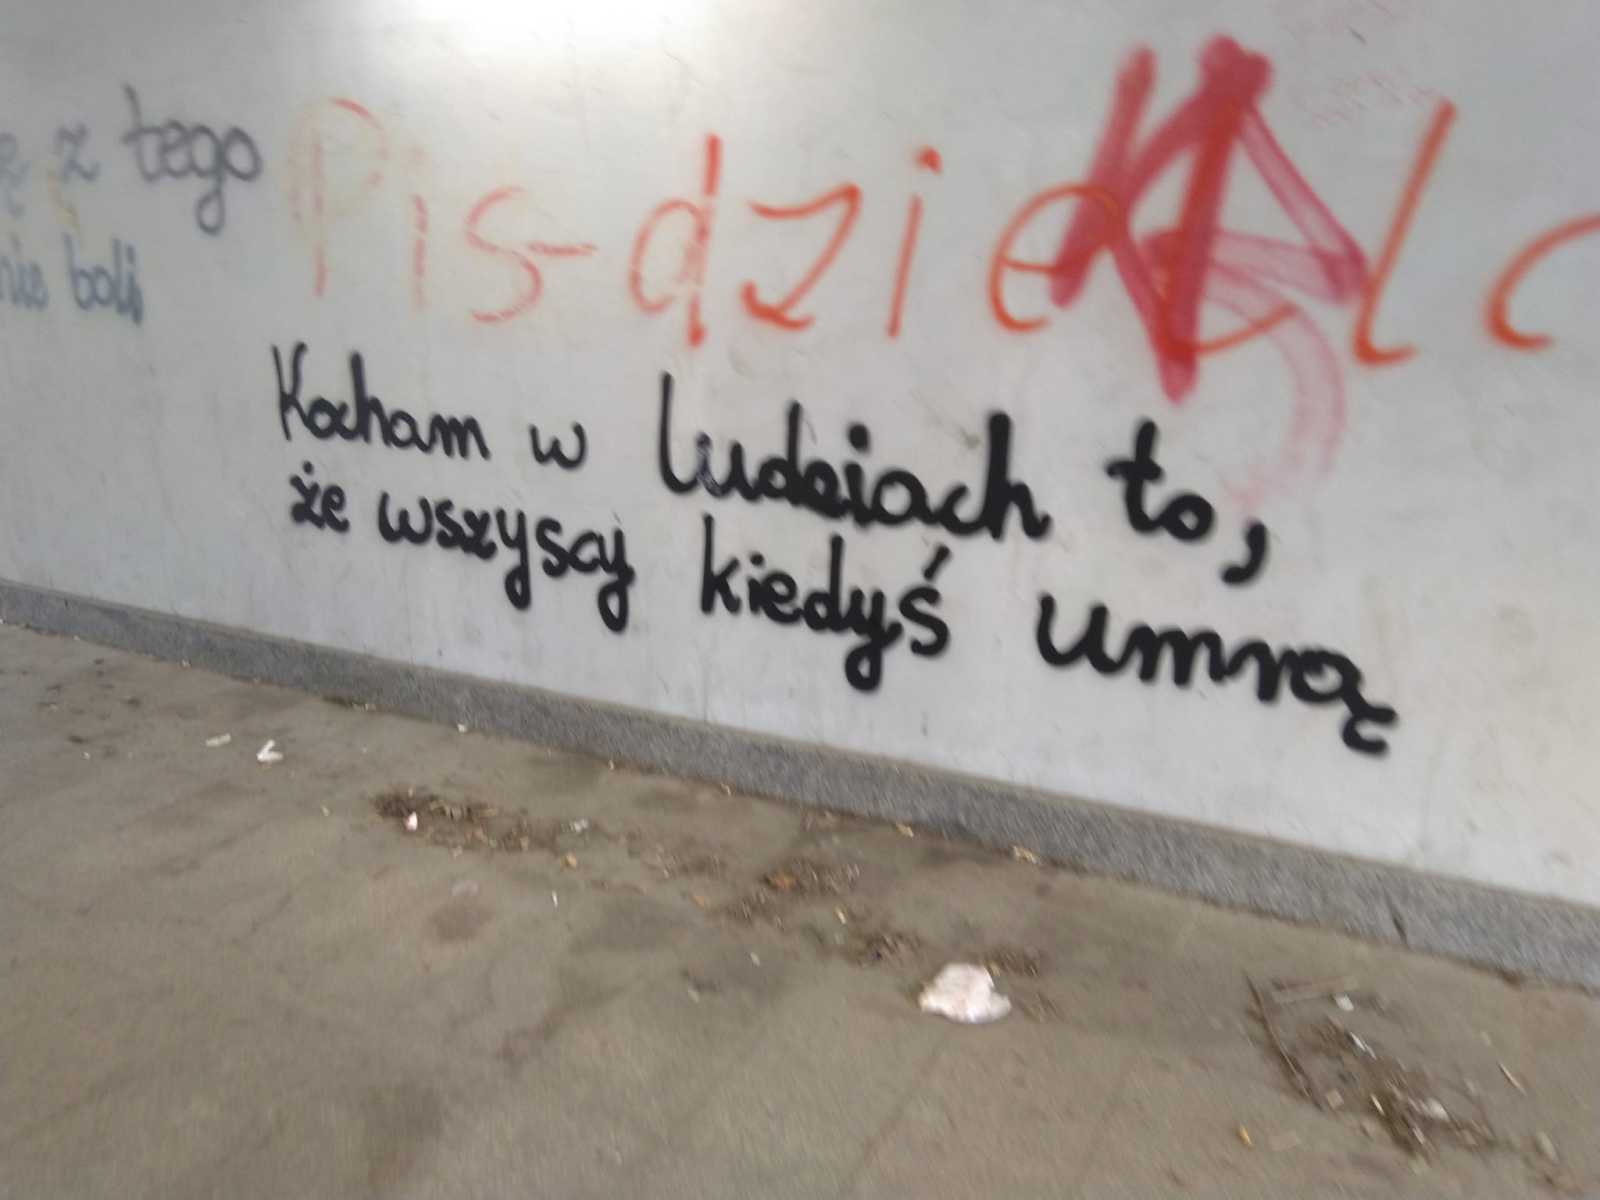 z tego
nie boli
Pis-dziel
Kocham w ludziach to,
że wszyscy kiedyś umrą